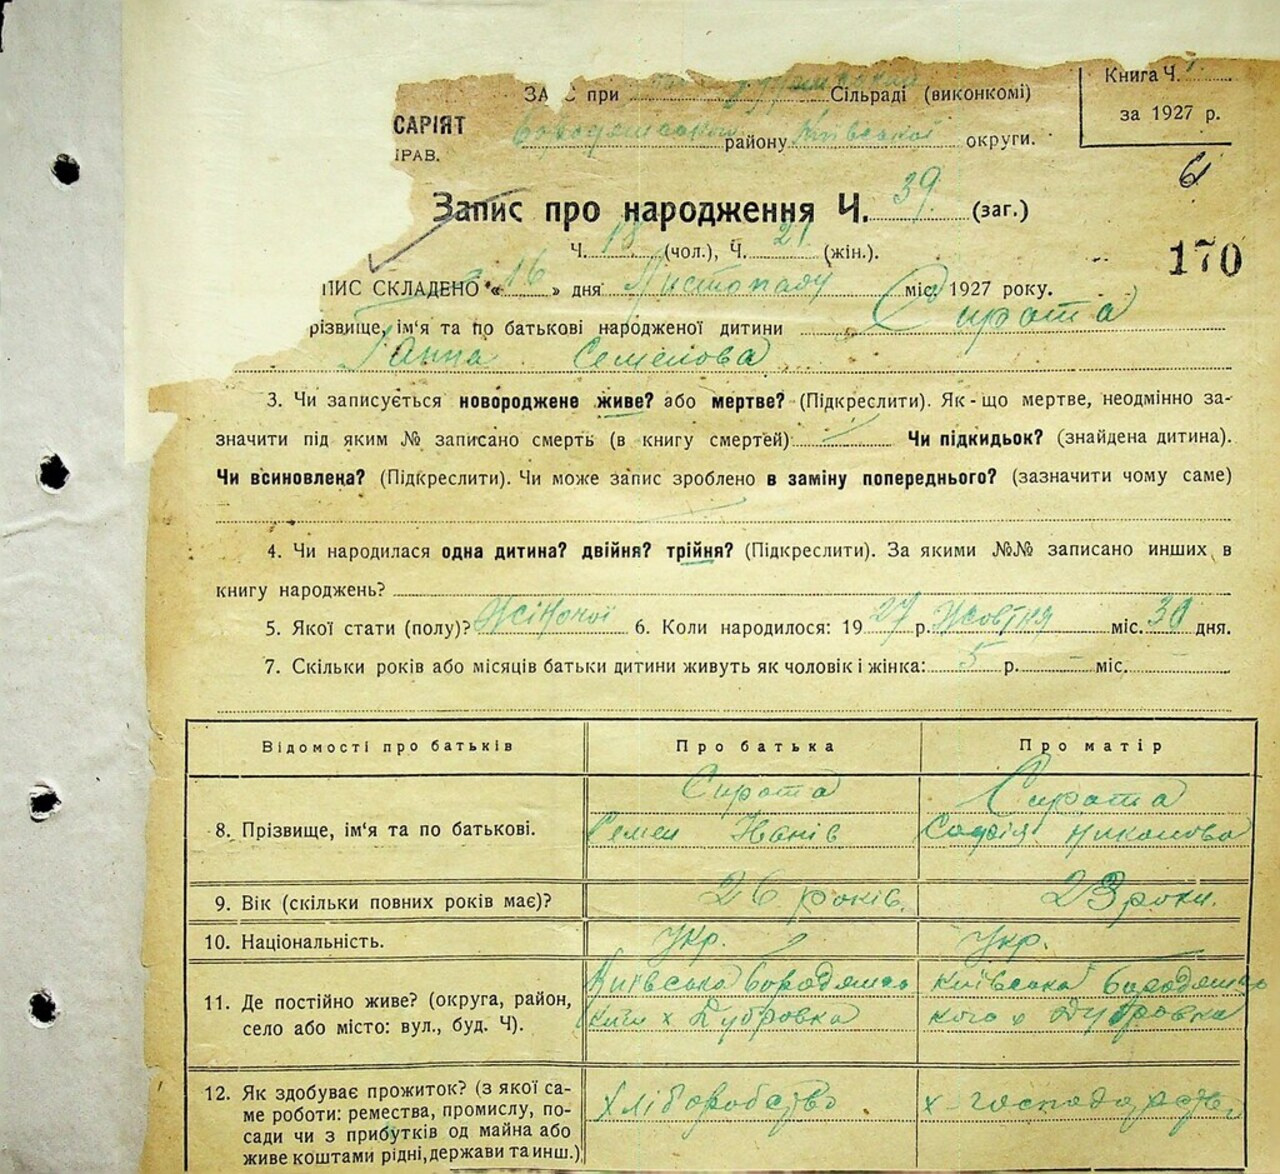 ЗА С при Сільраді (виконкомі)
Книга Ч.
за 1927 р.
САРІЯТ
ІРАВ.
району Київської округи.
6
Запис про народження Ч. 39 (заг.)
Ч. 18 (чол.), Ч. 21 (жін.).
170
ПИС СКЛАДЕНО «16» дня Листопаду міс. 1927 року.
різвище, ім'я та по батькові народженої дитини Сирота
Ганна Семенова
3. Чи записується новороджене живе? або мертве? (Підкреслити). Як-що мертве, неодмінно за-
значити під яким № записано смерть (в книгу смертей) Чи підкидьок? (знайдена дитина).
Чи всиновлена? (Підкреслити). Чи може запис зроблено в заміну попереднього? (зазначити чому саме)
4. Чи народилася одна дитина? двійня? трійня? (Підкреслити). За якими №№ записано инших в
книгу народжень?
5. Якої стати (полу)? Жіночої 6. Коли народилося: 1927 р. Жовтня міс. 30 дня.
7. Скільки років або місяців батьки дитини живуть як чоловік і жінка: 5 р. — міс. —
Відомості про батьків Про батька Про матір
Сирота Сирота
8. Прізвище, ім'я та по батькові. Семен Іванів Софія Никонова
9. Вік (скільки повних років має)? 26 років. 23 роки.
10. Національність. Укр. Укр.
Київська Бородянсь Київська Бородянсь
11. Де постійно живе? (округа, район,
село або місто: вул., буд. Ч). х Дубровка кого х Дубровка
12. Як здобуває прожиток? (з якої са- Хліборобство х-господарство
ме роботи: ремества, промислу, по-
сади чи з прибутків од майна або
живе коштами рідні, держави та инш.)